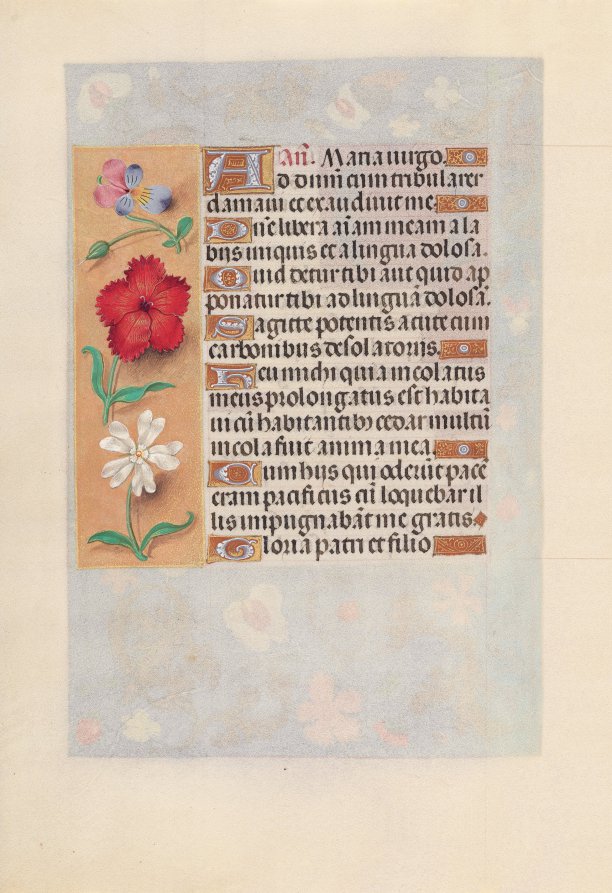 Añ. Maria uirgo.
Ad dominũ cum tribularer
clamaui et exaudiuit me.
Dñe libera aĩam meam a la
bijs iniquis et a lingua dolosa.
Quid detur tibi aut quid ap
ponatur tibi ad linguã dolosã.
Sagitte potentis acute cum
carbonibus desolatorijs.
Heu michi quia incolatus
meus prolongatus est habita
ui cũ habitantibꝰ cedar multũ
incola fuit anima mea.
Cum hijs qui oderũt pacẽ
eram pacificus cũ loquebar il
lis impugnabãt me gratis.
Gloria patri et filio